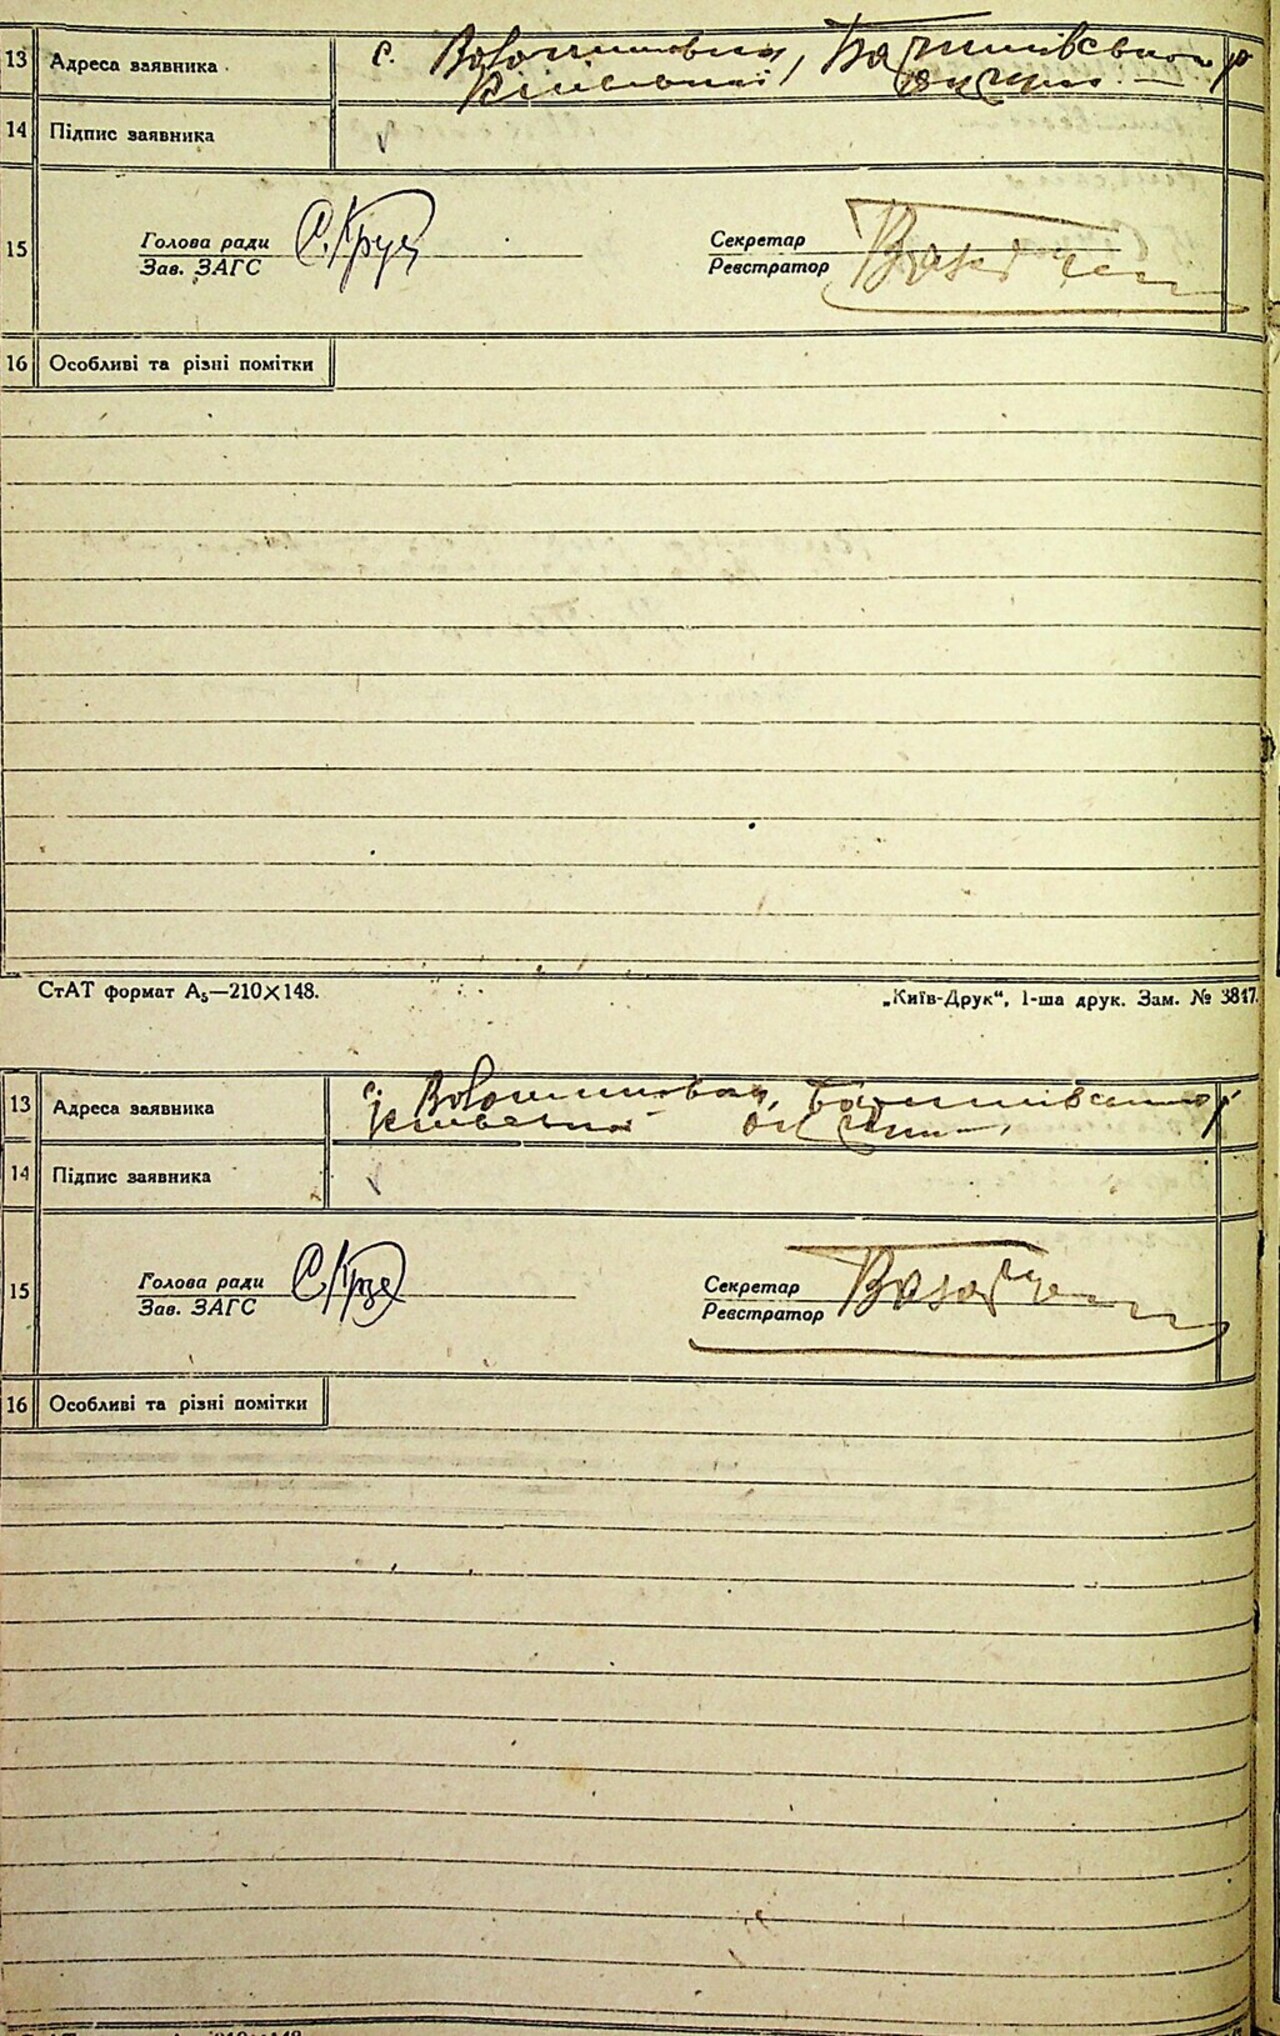 13 Адреса заявника с. Волошиновка, Баришівського р
Київської округи
14 Підпис заявника
15 Голова ради С. Круц Секретар
Зав. ЗАГС Реєстратор
16 Особливі та різні помітки
СтАТ формат А₅—210×148. „Київ-Друк“, 1-ша друк. Зам. № 3817.
13 Адреса заявника с. Волошиновка, Баришівського р
Київської округи
14 Підпис заявника
15 Голова ради Секретар
Зав. ЗАГС Реєстратор
16 Особливі та різні помітки